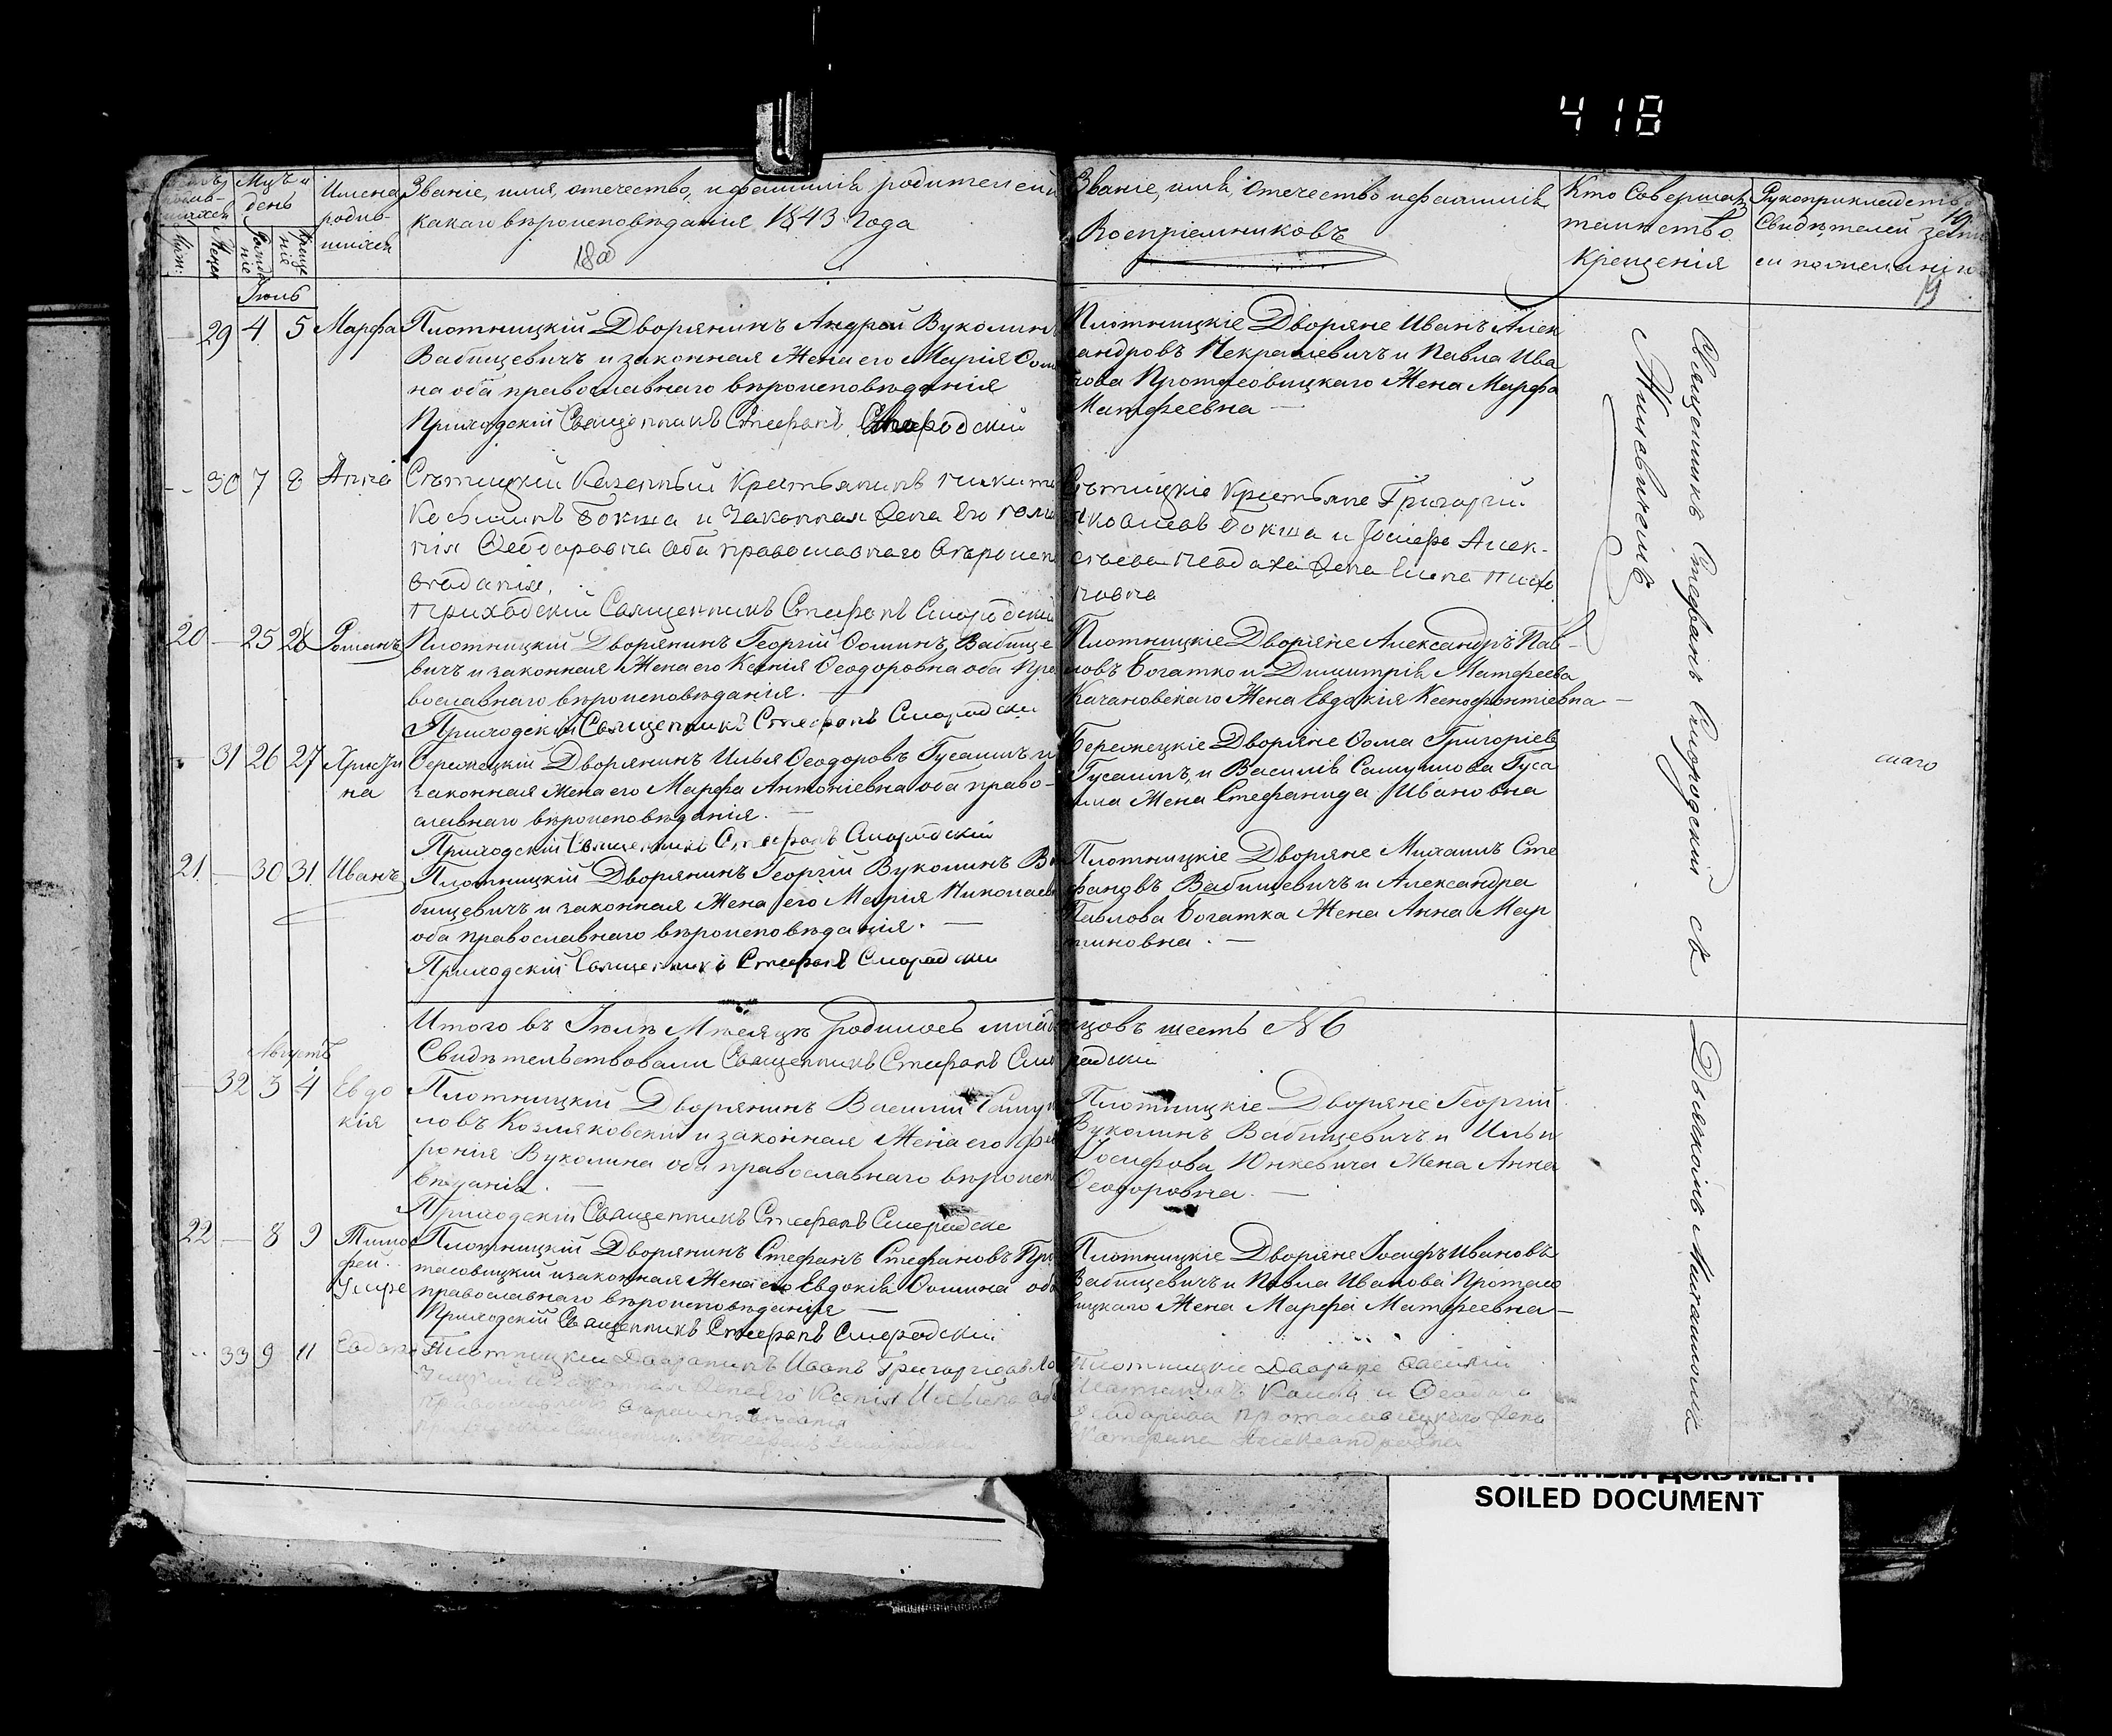 418
Мцъ и день
Имена родив-
шихся
Званіе, имя, отечество, и фамилія родителей
какаго вѣроисповѣданія 1843 года
Званіе, имя, отечество и фамилія
Воспріемниковъ
Кто Совершалъ
таинство
Крещенія
Рукоприкладство
Свидѣтелей
19
Іюль
29 4 5 Марфа
Плотницкій Дворянинъ Андрей Вуколинъ
Вабищевичъ и законная Жена его Марія Ѳоми
на оба православнаго вѣроисповѣданія
Приходскій Священникъ Стефанъ Смородскій
Плотницкіе Дворяне Иванъ Алек
сандровъ Некрашевичъ и Павла Ива
нова Протасовицкаго Жена Марфа
Матфеевна —
30 7 8 Анна
Сѣтицкій Казенный Крестьянинъ Никита
Козьминъ Бокша и Законная Жена Его
Ѳеодоровна оба православнаго вѣроиспо
вѣданія.
Приходскій Священникъ Стефанъ Смородскій
Сѣтицкіе Крестьяне Григорій
Яковлевъ Бокша и Іосифа Алек-
сѣева Жена
20 — 25 28 Романъ
Плотницкій Дворянинъ Георгій Ѳоминъ Вабище
вичъ и законная Жена его Ксенія Ѳеодоровна оба Пра
вославнаго вѣроисповѣданія. —
Приходскій Священникъ Стефанъ Смородскій
Плотницкіе Дворяне Александръ Пав-
ловъ Богатко и Димитрія Матфеева
Качановскаго Жена Евдокія Ксенофонтіевна —
31 26 27 Христи
на
Бережецкій Дворянинъ Илья Ѳеодоровъ Гусаимъ и
законная Жена его Марфа Антоніевна оба право-
славнаго вѣроисповѣданія. —
Приходскій Священникъ Стефанъ Смородскій
Бережецкіе Дворяне Ѳома Григоріев
Гусаимъ, и Василія Самуилова Гуса
има Жена Стефанида Ивановна
21 — 30 31 Иванъ
Плотницкій Дворянинъ Георгій Вуколинъ Ва
бищевичъ и законная Жена его Марія Николаев
оба православнаго вѣроисповѣданія. —
Приходскій Священникъ Стефанъ Смородскій
Плотницкіе Дворяне Михаилъ Сте
фановъ Вабищевичъ и Александра
Павлова Богатка Жена Анна Мар
тиновна. —
Итого въ Іюлѣ Мѣсяцѣ родилось младенцовъ шесть №6
Свидѣтельствовали Священникъ Стефанъ Смородскій
Августъ
32 3 4 Евдо
кія
Плотницкій Дворянинъ Василій Самуи
ловъ Козляковскій и законная Жена его Фев
ронія Вуколина оба православнаго вѣроиспо
вѣданія. —
Приходскій Священникъ Стефанъ Смородскій
Плотницкіе Дворяне Георгій
Вуколинъ Вабищевичъ и Ильи
Іосифова Юнкевича Жена Анна
Ѳеодоровна. —
22 — 8 9 Тимо
фей.
Умре
Плотницкій Дворянинъ Стефанъ Стефановъ Про
тасовицкій и законная Жена его Евдокія Ѳомина оба
православнаго вѣроисповѣданія —
Приходскій Священникъ Стефанъ Смородскій
Плотницкіе Дворяне Іосифъ Ивановъ
Вабищевичъ и Павла Иванова Протасо
вицкаго Жена Марфа Матфеевна —
33 9 11
Плотницкій Дворянинъ Иванъ Григоріевъ
и Законная Жена его Ксенія
православнаго вѣроисповѣданія
Плотницкіе Дворяне Василій
Протасовицкаго Жена
Катерина Александровна
Священникъ Стефанъ Смородскій съ
Дьячкомъ Михаиломъ
Жилевичемъ
SOILED DOCUMENT